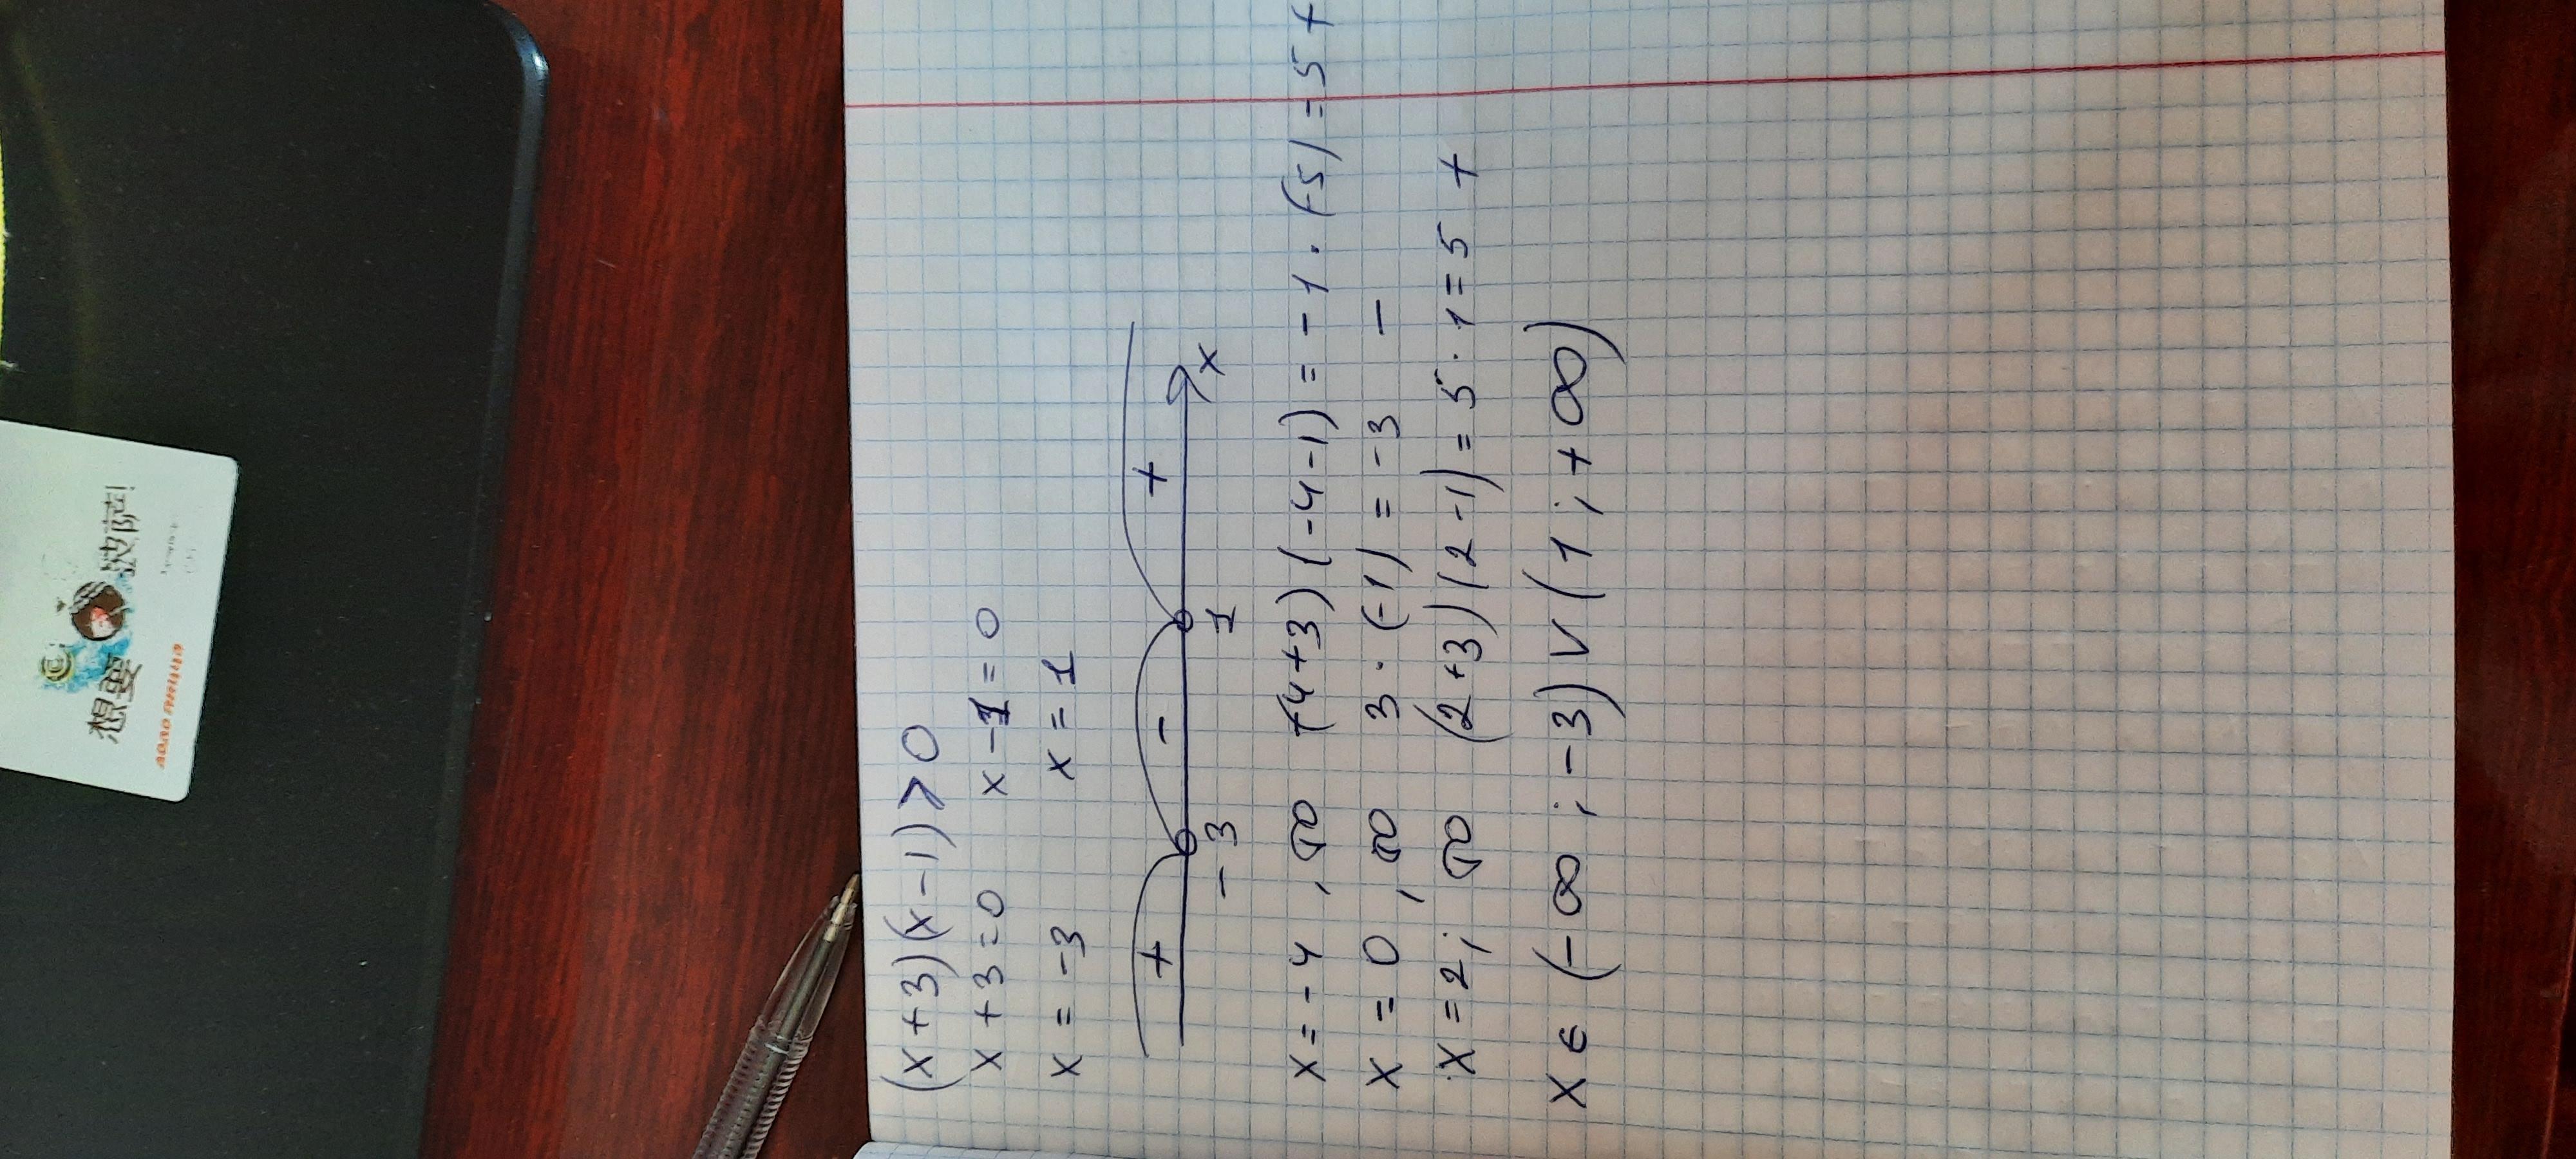 (x+3)(x-1)>0
x+3=0 x-1=0
x=-3 x=1
+ - +
-3 1 x
x=-4, то (-4+3)(-4-1)=-1·(-5)=5 +
x=0, то 3·(-1)=-3 -
x=2; то (2+3)(2-1)=5·1=5 +
x∈(-∞;-3)∨(1;+∞)
想要 披萨!